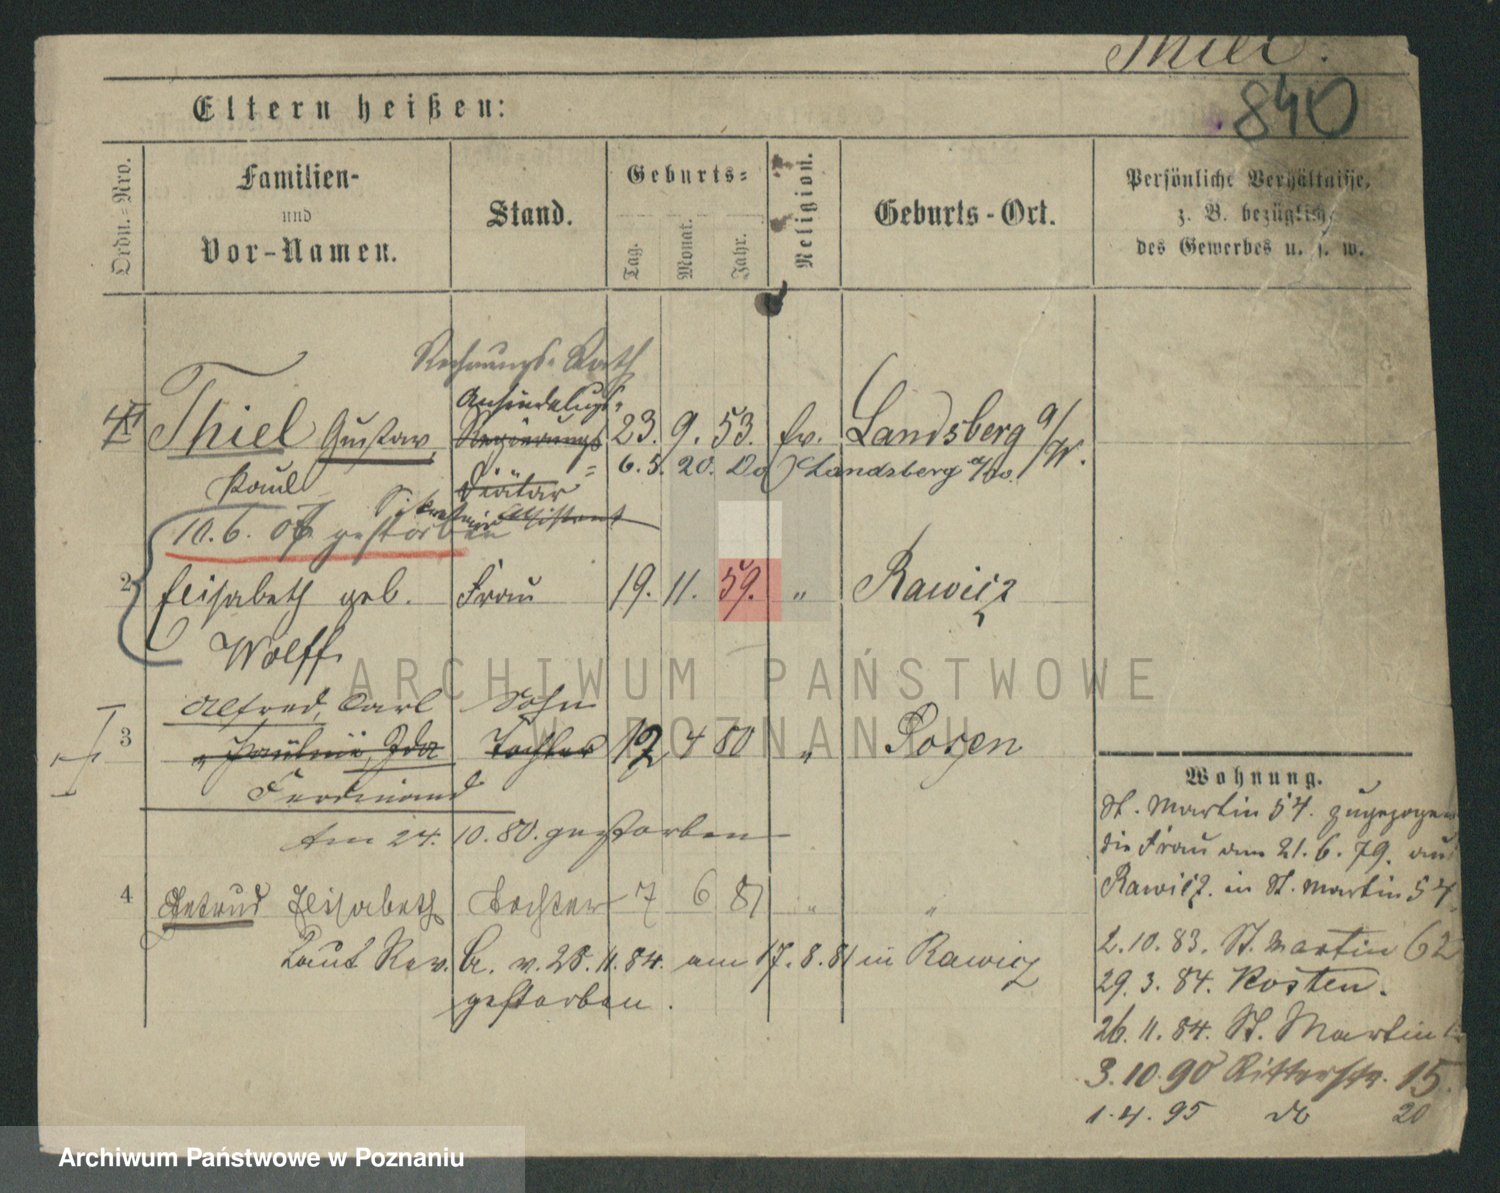 Thiel.
840
Eltern heißen:
Ordn.=Nro.
Familien-
und
Vor-Namen.
Stand.
Geburts=
Tag.
Monat.
Jahr.
Religion.
Geburts-Ort.
Persönliche Verhältnisse,
z. B. bezüglich
des Gewerbes u. s. w.
Rechnungs-Rath
Ansiedelungs-
Thiel Gustav, Regierungs 23. 9. 53. ev. Landsberg a/W.
Paul Diätar 6. 5. 20. Do Landsberg a/W.
Sekretair Assistent
10. 6. 07. gestorben
2 Elisabeth geb. Frau 19. 11. 59. " Rawicz
Wolff
Alfred, Carl Sohn
3 " Ida Tochter 12 4 80 " Posen
Ferdinand
Am 24. 10. 80. gestorben
4 Gertrud Elisabeth Tochter 7 6 81 " "
Laut Rev. B. v. 28. 11. 84. am 17. 8. 81 in Rawicz
gestorben.
Wohnung.
St. Martin 54. zugezogen
die Frau am 21. 6. 79. aus
Rawicz. in St. Martin 54.
2. 10. 83. St. Martin 62
29. 3. 84. Kosten.
26. 11. 84. St. Martin
3. 10. 90 Ritterstr. 15.
1. 4. 95 do 20
ARCHIWUM PAŃSTWOWE
W POZNANIU
Archiwum Państwowe w Poznaniu